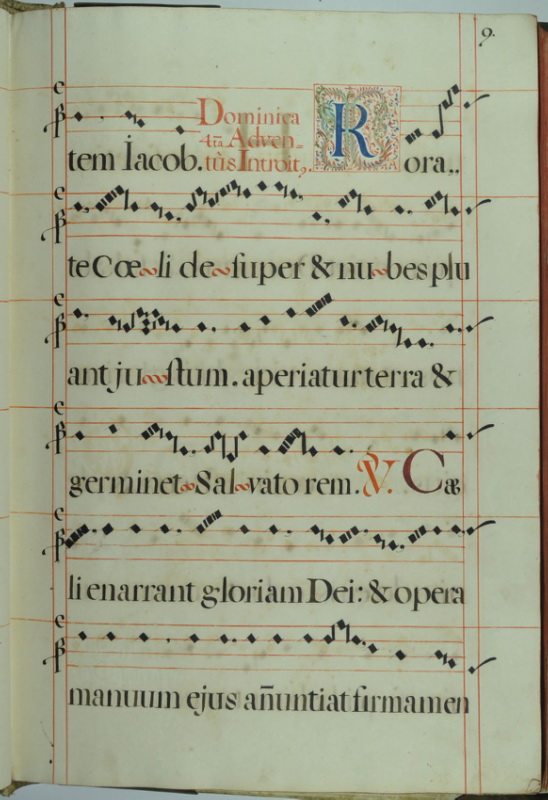 9.
tem Jacob. Dominica
4tā Adven-
tûs Introit9. Rora..
te Cœ~li de~super & nu~bes plu
ant ju~~stum. aperiatur terra &
germinet~Sal~vato rem. ℣. Cæ
li enarrant gloriam Dei: & opera
manuum ejus an̄untiat firmamen